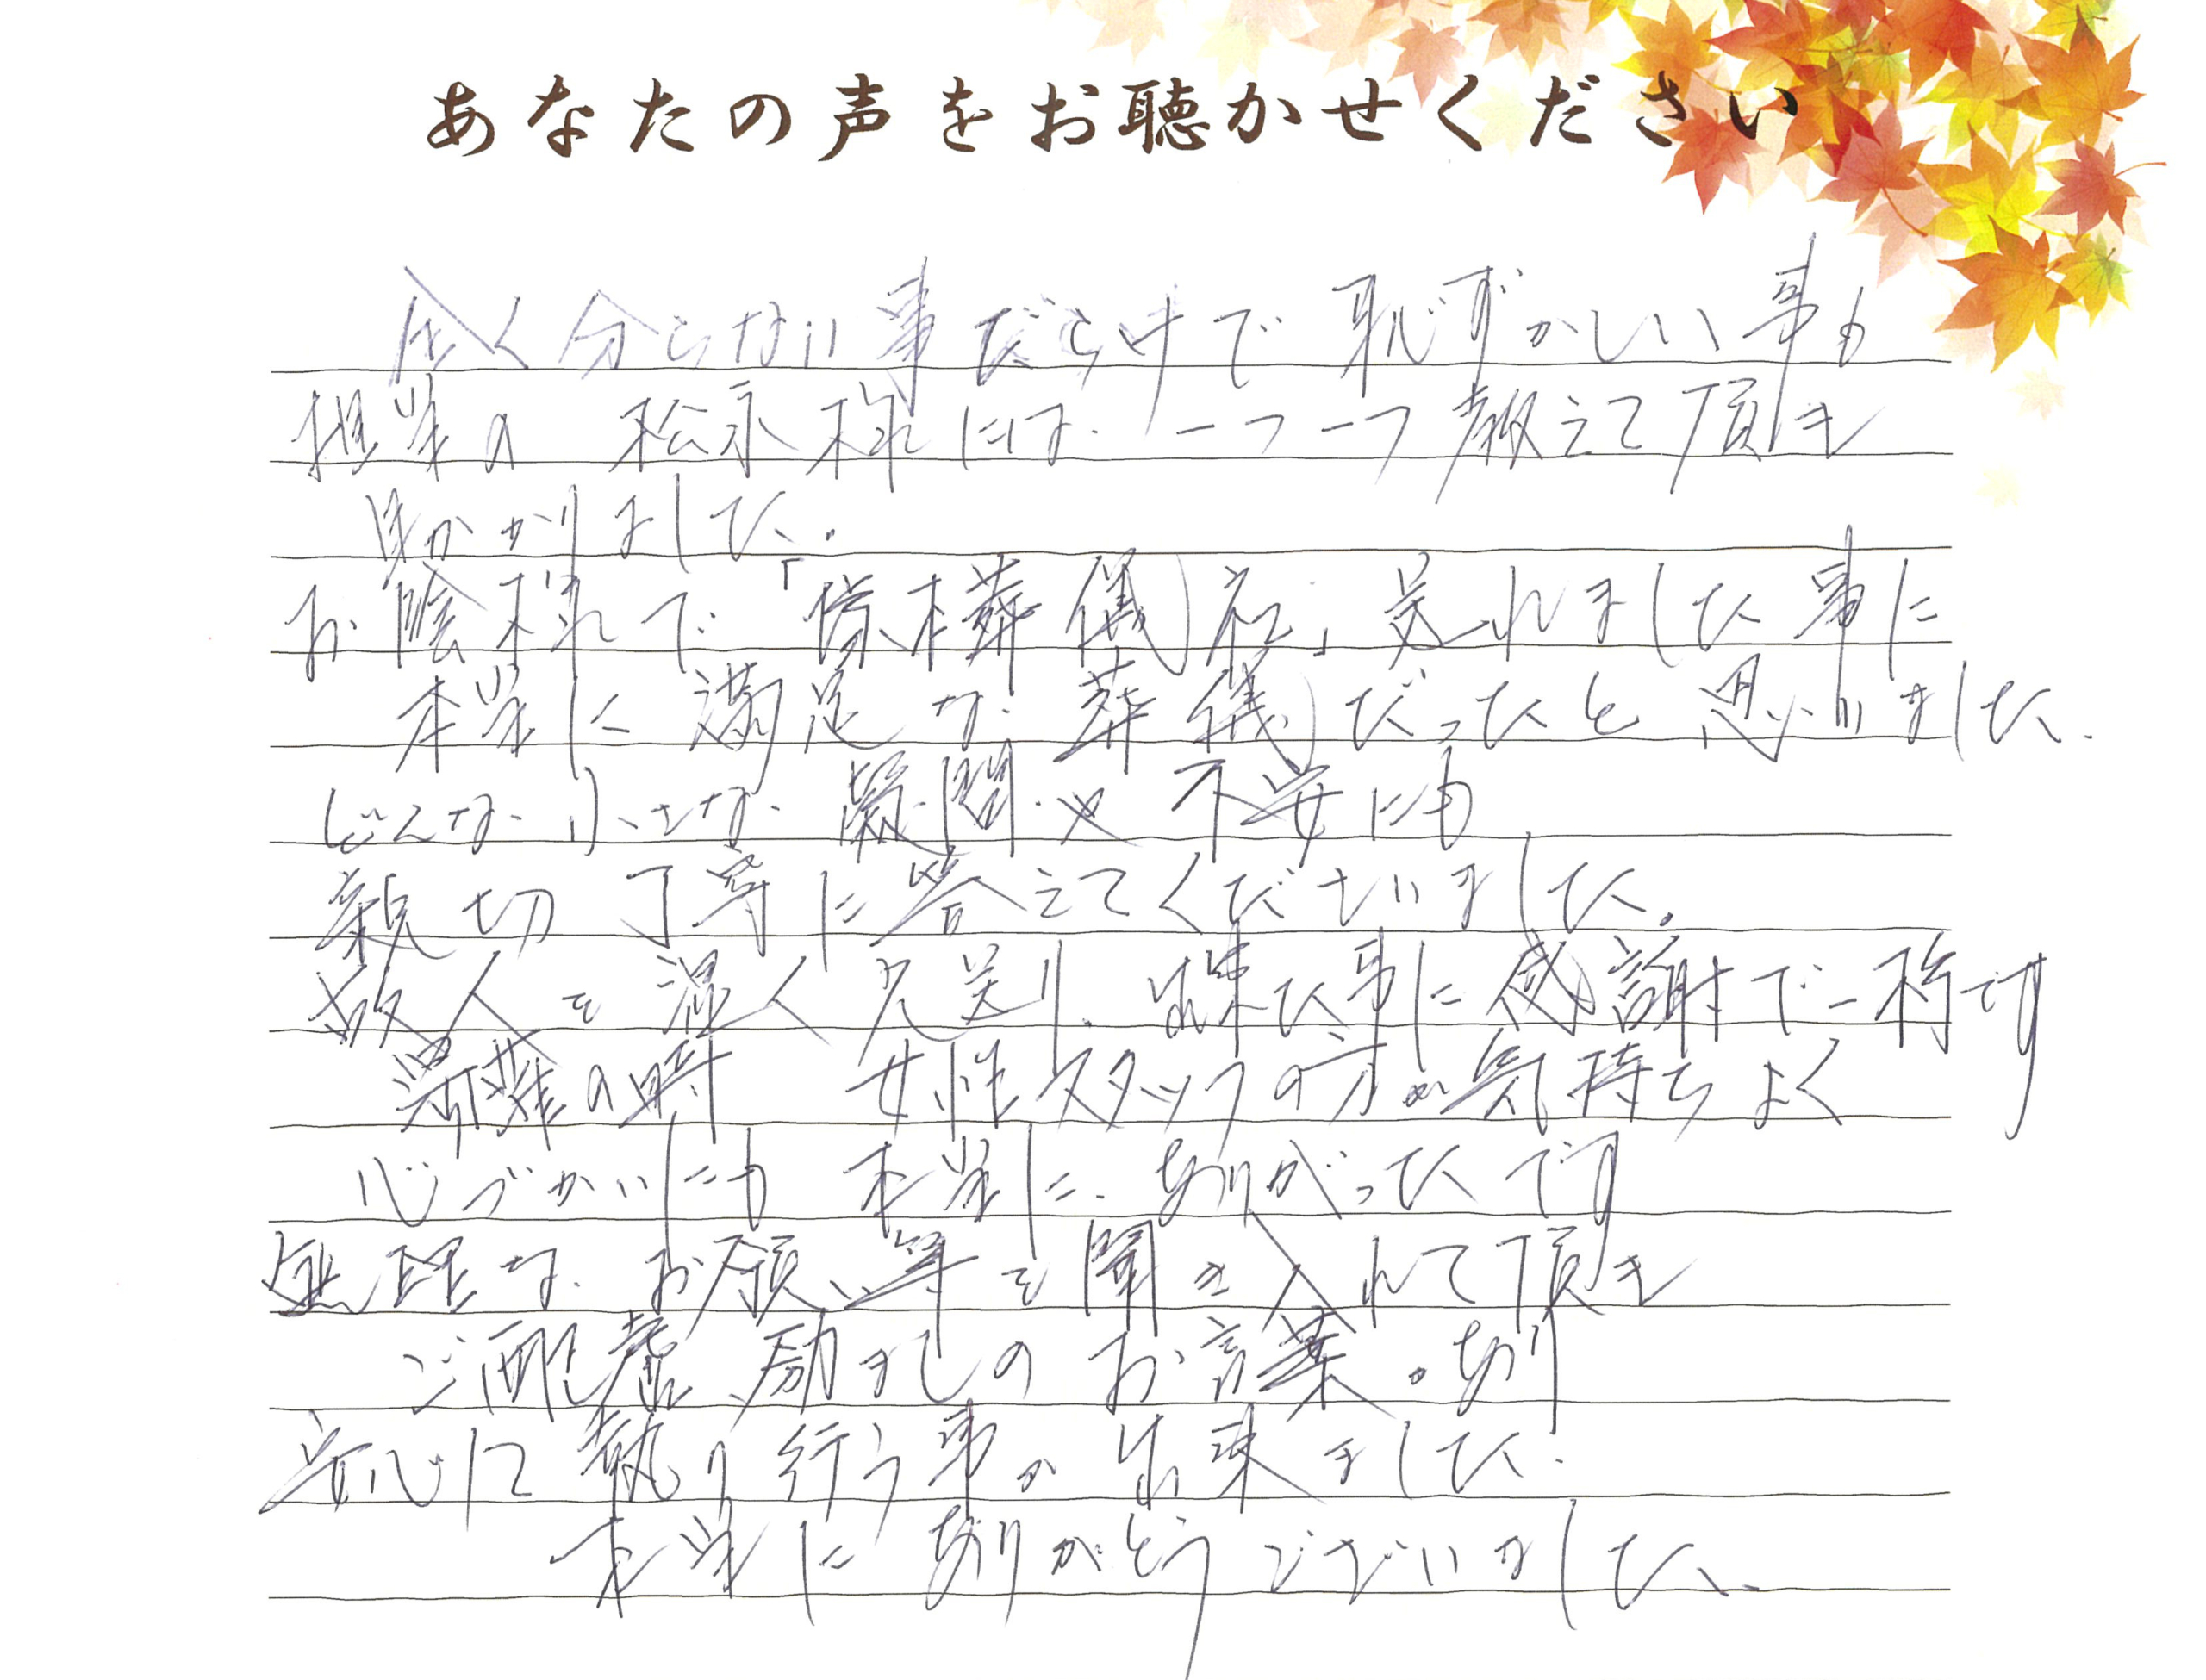 あなたの声をお聴かせください
全く分らない事だらけで恥ずかしい事も
担当の 松永様には、一つ一つ教えて頂き
助かりました。
お陰様で「 葬儀社」 ました事に
本当に満足な葬儀だったと思いました、
どんな小さな疑問や不安にも
親切丁寧に答えてくださいました。
故人を 見送り、出来た事に感謝で一杯です
の時 女性スタッフの方の気持ちよく
心づかいにも本当に、ありがったです
無理な、お願い等を聞き入れて頂き
ご配慮、励ましのお言葉 あり
安心して執り行う事が出来ました、
本当にありがとうございました、